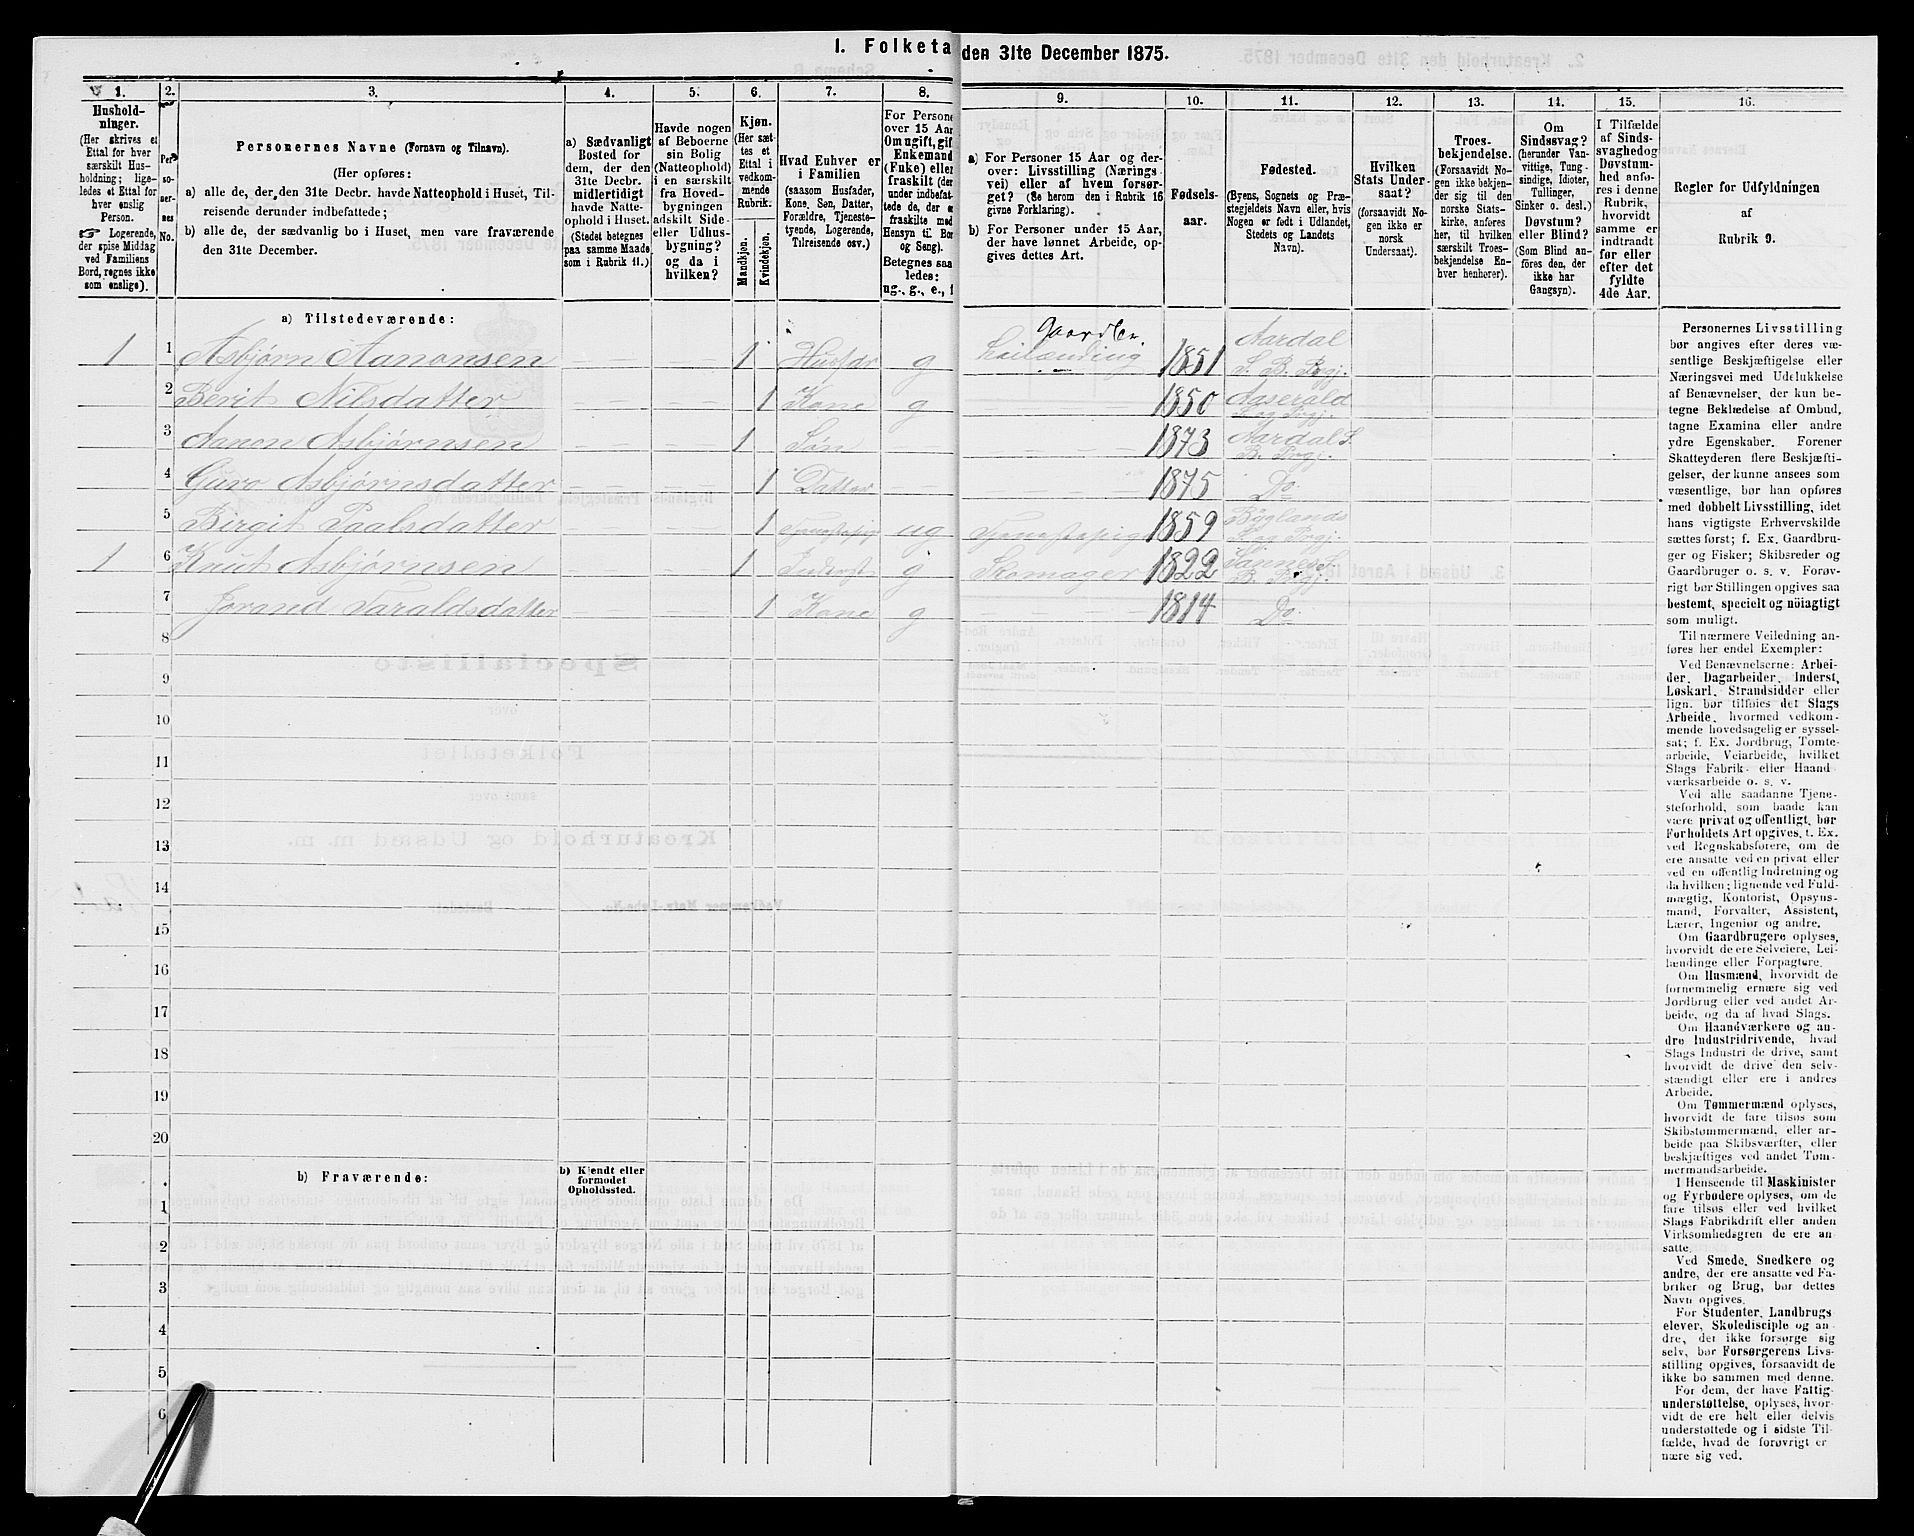 I. Folketa den 31te December 1875.
1. 2. 3. 4. 5. 6. 7. 8. 9. 10. 11. 12. 13. 14. 15. 16.
Hushold-
ninger.
(Her skrives et
Ettal for hver
særskilt Hus-
holdning; lige-
ledes et Ettal for
hver enslig
Person.
Logerende,
der spise Middag
ved Familiens
Bord, regnes ikke
som enslige).
Per-
so-
ner-
nes
No.
Personernes Navne (Fornavn og Tilnavn).
(Her opføres:
a) alle de, der den 31te Decbr. havde Natteophold i Huset, Til-
reisende derunder indbefattede;
b) alle de, der sædvanlig bo i Huset, men vare fraværende
den 31te December.
a) Sædvanligt
Bosted for
dem, der den
31te Decbr.
midlertidigt
havde Natte-
ophold i Huset.
(Stedet betegnes
paa samme Maade
som i Rubrik 11.)
Havde nogen
af Beboerne
sin Bolig
(Natteophold)
i en særskilt
fra Hoved-
bygningen
adskilt Side-
eller Udhus-
bygning?
og da i
hvilken?
Kjøn.
(Her sæt-
tes et
Ettal i
vedkom-
mende
Rubrik.)
Mandkjøn.
Kvindekjøn.
Hvad Enhver er
i Familien
(saasom Husfader,
Kone, Søn, Datter,
Forældre, Tjeneste-
tyende, Logerende,
Tilreisende osv.)
For Persone
over 15 Aar
Om ugift, gif
Enkemand
(Enke) eller
fraskilt (der
under indbefat-
tede de, der e
fraskilte med
Hensyn til Bor
og Seng).
Betegnes saa
ledes:
ug., g., e., f
a) For Personer 15 Aar og der-
over: Livsstilling (Nærings-
vei) eller af hvem forsør-
get? (Se herom den i Rubrik 16
givne Forklaring).
b) For Personer under 15 Aar,
der have lønnet Arbeide, op-
gives dettes Art.
Fødsels-
aar.
Fødested.
(Byens, Sognets og Præ-
stegjeldets Navn eller, hvis
Nogen er født i Udlandet,
Stedets og Landets
Navn).
Hvilken
Stats Under-
saat?
(forsaavidt No-
gen ikke er
norsk
Undersaat).
Troes-
bekjendelse.
(Forsaavidt No-
gen ikke bekjen-
der sig til den
norske Stats-
kirke, anføres
her, til hvilken
særskilt Troes-
bekjendelse En-
hver henhører).
Om
Sindssvag?
(herunder Van-
vittige, Tung-
sindige, Idioter,
Tullinger,
Sinker o. desl.)
Døvstum?
eller Blind?
(Som Blind an-
føres den, der
ikke har
Gangsyn).
I Tilfælde
af Sinds-
svaghed og
Døvstum-
hed anfø-
res i denne
Rubrik,
hvorvidt
samme er
indtraadt
før eller
efter det
fyldte
4de Aar.
Regler for Udfyldningen
af
Rubrik 9.
a) Tilstedeværende:
1 1 Asbjørn Aanonsen 1 g Gaardbr. Leilænding 1851 Aardal S. B. Prgj.
2 Berit Nilsdatter 1 Kone g 1850 Aaserald
3 Aanon Asbjørnsen 1 Søn 1873 Aardal S. B. Prgj.
4 Guro Asbjørnsdatter 1 Datter 1875 Do.
5 Birgit Paalsdatter 1 ug 1859 Bøglands
1 6 Knut Asbjørnsen 1 Inderst g Skomager 1822 Sannes S. B. Prgj.
7 Jorand Taraldsdatter 1 Kone g 1814 Do.
8
9
10
11
12
13
14
15
16
17
18
19
20
b) Fraværende:
b) Kjendt eller
formodet
Opholdssted.
1
2
3
4
5
6
Personernes Livsstilling
bør angives efter deres væ-
sentlige Beskjæftigelse eller
Næringsvei med Udelukkelse
af Benævnelser, der kun be-
tegne Beklædelse af Ombud,
tagne Examina eller andre
ydre Egenskaber. Forener
Skatteyderen flere Beskjæfti-
gelser, der kunne ansees som
væsentlige, bør han opføres
med dobbelt Livsstilling, idet
hans vigtigste Erhvervskilde
sættes først; f. Ex. Gaardbru-
ger og Fisker; Skibsreder og
Gaardbruger o. s. v. Forøv-
rigt bør Stillingen opgives saa
bestemt, specielt og nöiagtigt
som muligt.
Til nærmere Veiledning an-
føres her endel Exempler:
Ved Benævnelserne: Arbei-
der, Dagarbeider, Inderst,
Løskarl, Strandsidder eller
lign. bør tilføies det Slags
Arbeide, hvormed vedkom-
mende hovedsagelig er syssel-
sat; f. Ex. Jordbrug, Tomte-
arbeide, Veiarbeide, hvilket
Slags Fabrik- eller Haand-
værksarbeide o. s. v.
Ved alle saadanne Tjene-
steforhold, som baade kan
være privat og offentligt, bør
Forholdets Art opgives, t. Ex.
ved Regnskabsførere, om de
ere ansatte ved en privat eller
ved en offentlig Indretning og
da hvilken; lignende ved Fuld-
mægtig, Kontorist, Opsyns-
mand, Forvalter, Assistent,
Lærer, Ingeniør og andre.
Om Gaardbrugere oplyses,
hvorvidt de ere Selveiere, Lei-
lændinge eller Forpagtere.
Om Husmænd, hvorvidt de
fornemmelig ernære sig ved
Jordbrug eller ved andet Ar-
beide, og da af hvad Slags.
Om Haandværkere og an-
dre Industridrivende, hvad
Slags Industri de drive, samt
hvorvidt de drive den selv-
stændigt eller ere i andres
Arbeide.
Om Tømmermænd oplyses,
hvorvidt de fare tilsøs som
Skibstømmermænd, eller ar-
beide paa Skibsværfter, eller
beskjæftiges ved andet Tøm-
mermandsarbeide.
I Henseende til Maskinister
og Fyrbødere oplyses, om de
fare tilsøs eller ved hvilket
Slags Fabrikdrift eller anden
Virksomhedsgren de ere an-
satte.
Ved Smede, Snedkere og
andre, der ere ansatte ved Fa-
briker og Brug, bør dettes
Navn opgives.
For Studenter, Landbrugs-
elever, Skoledisciple og an-
dre, der ikke forsørge sig
selv, bør Forsørgerens Livs-
stilling opgives, forsaavidt de
ikke bo sammen med denne.
For dem, der have Fattig-
understøttelse, oplyses, hvor-
vidt de ere helt eller delvis
understøttede og i sidste Til-
fælde, hvad de forøvrigt er-
nære sig ved.